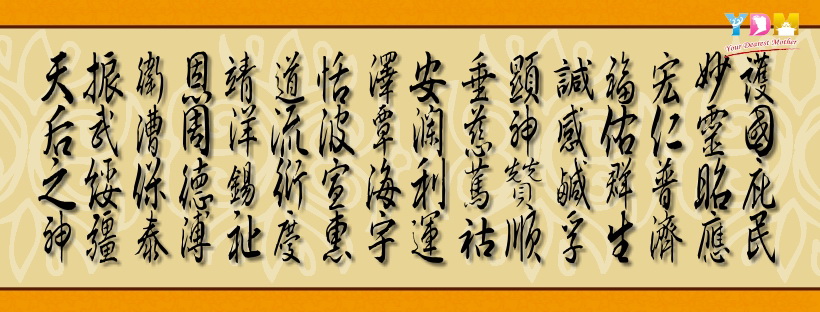 YDM
Your Dearest Mother
護國庇民
妙靈昭應
宏仁普濟
福佑群生
諴感鹹孚
顯神贊順
垂慈篤祜
安瀾利運
澤覃海宇
恬波宣惠
道流衍慶
靖洋錫祉
恩周德溥
衛漕保泰
振武綏疆
天后之神